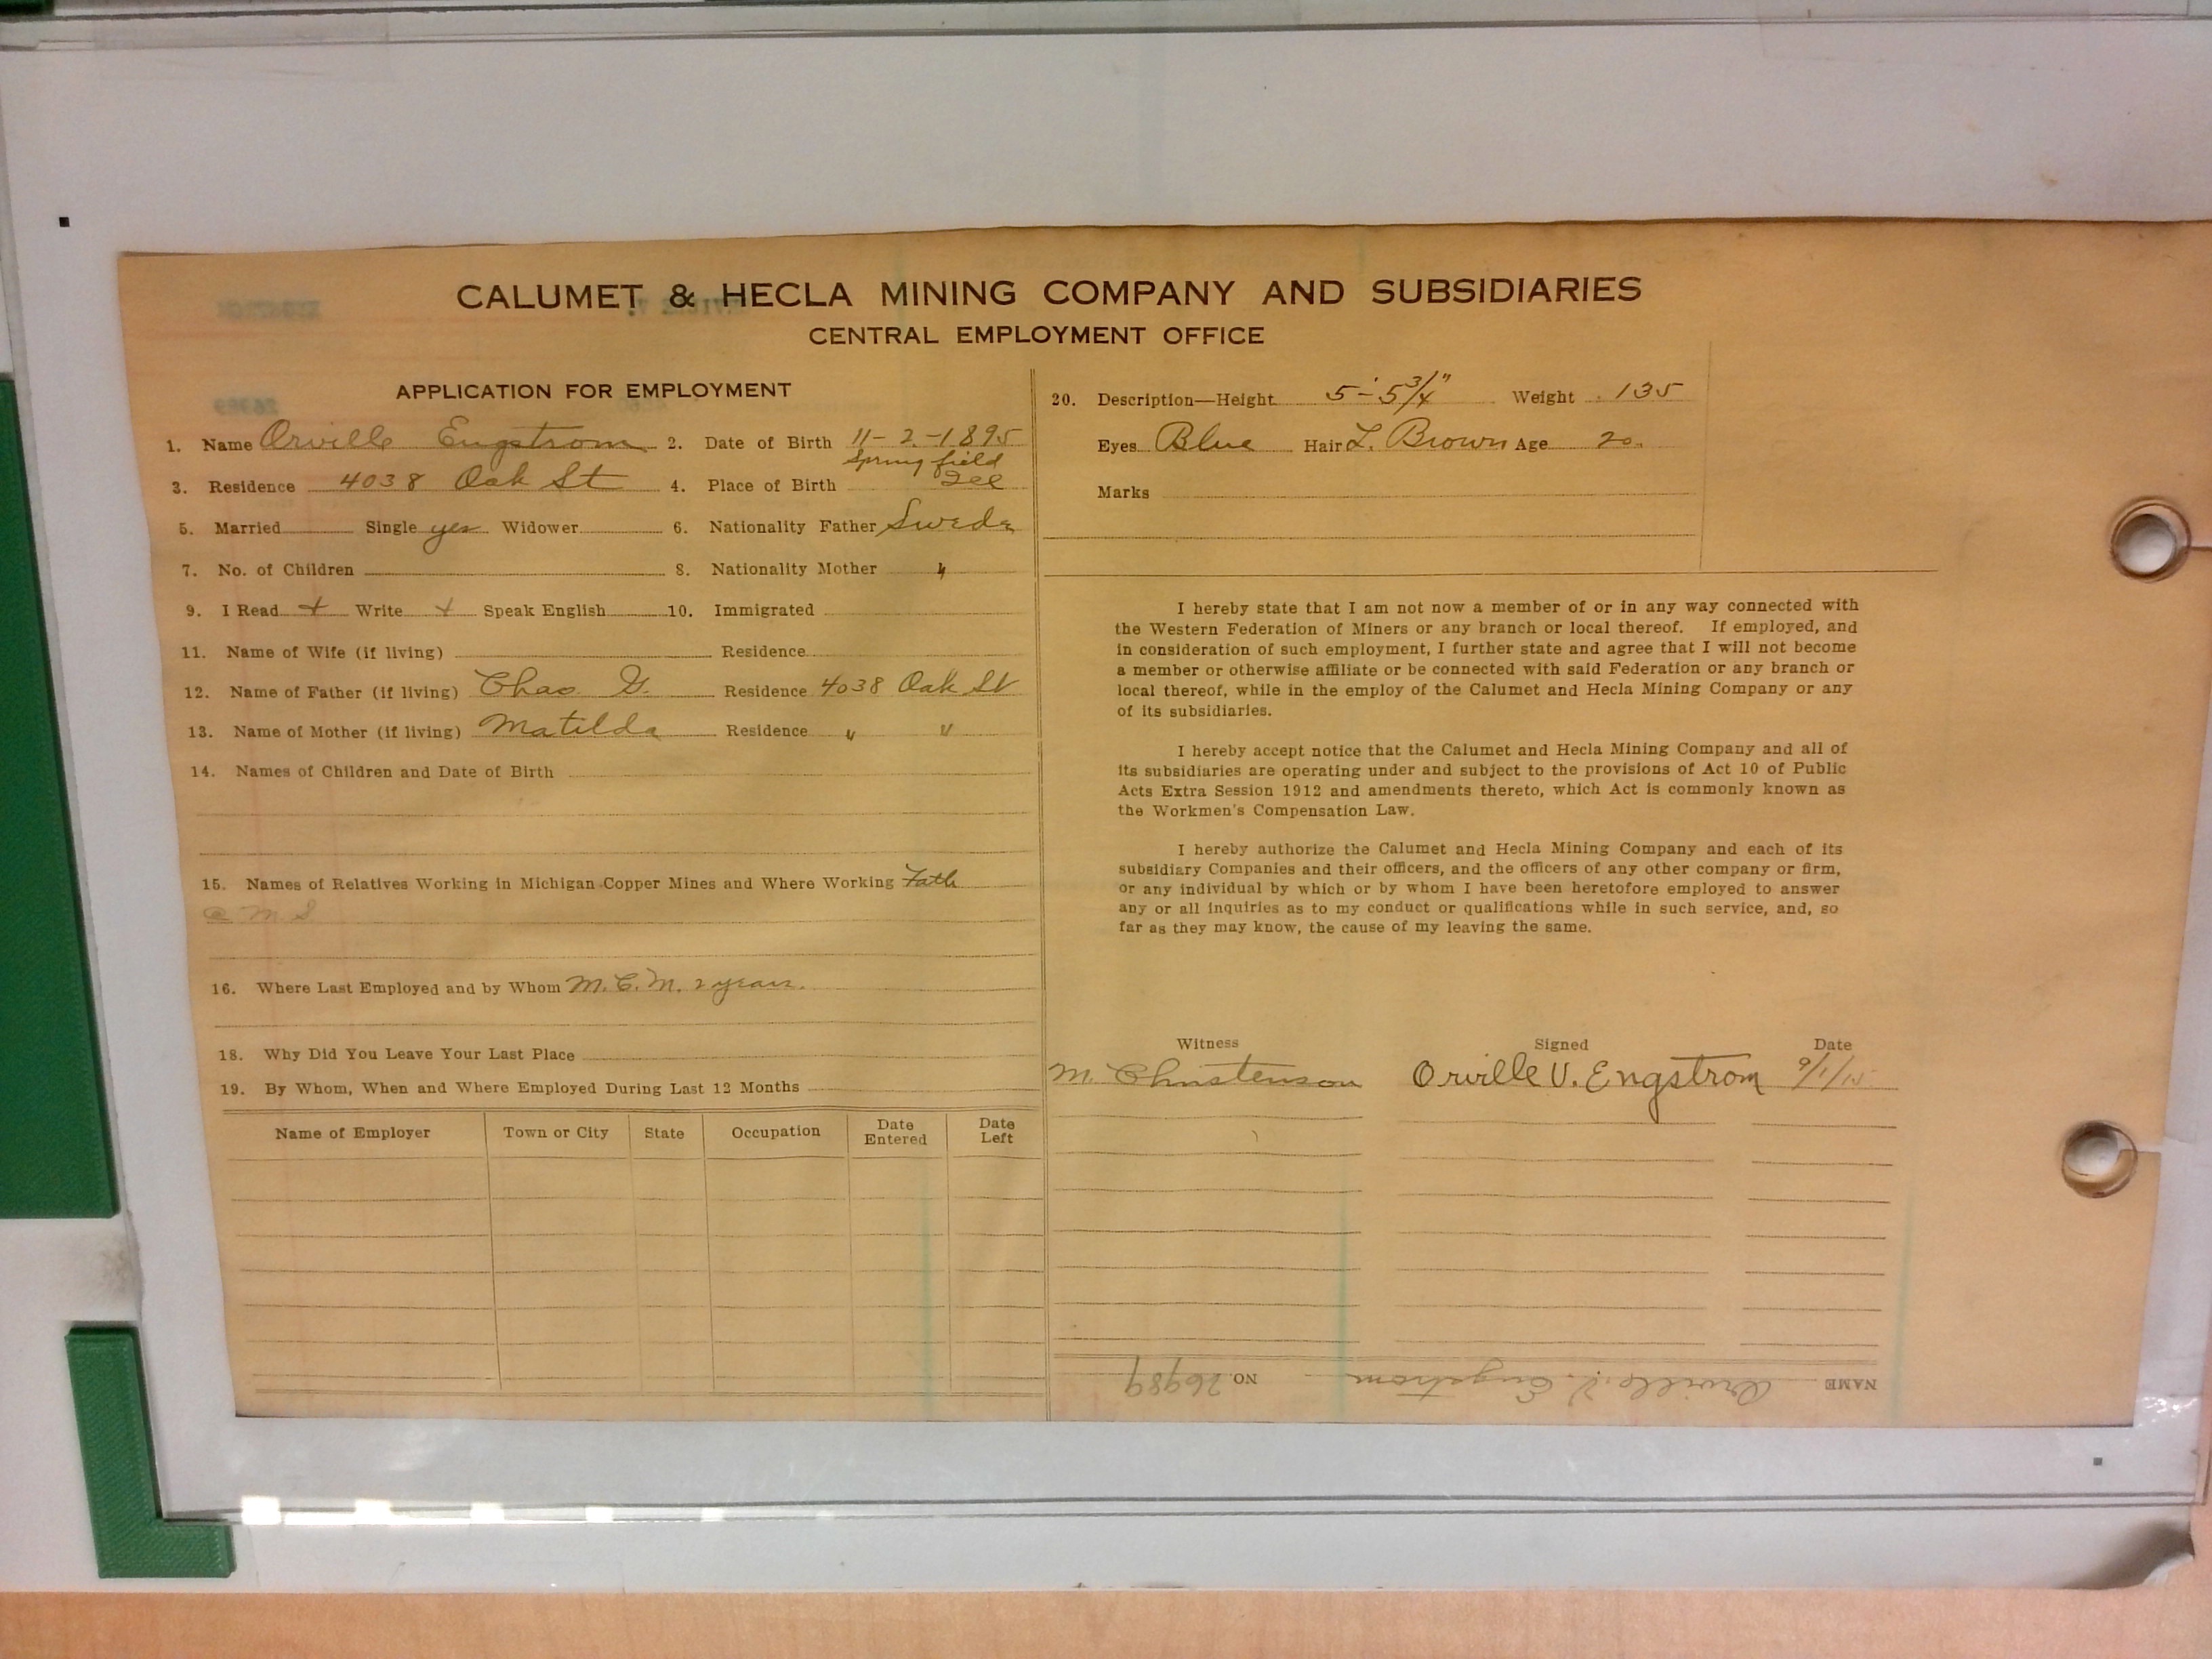 CALUMET & HECLA MINING COMPANY AND SUBSIDIARIES
CENTRAL EMPLOYMENT OFFICE
APPLICATION FOR EMPLOYMENT
1. Name Orville Engstrom 2. Date of Birth 11-2-1895
3. Residence 4038 Oak St 4. Place of Birth Springfield Ill
5. Married Single yes Widower 6. Nationality Father Swede
7. No. of Children 8. Nationality Mother "
9. I Read + Write + Speak English 10. Immigrated
11. Name of Wife (if living) Residence
12. Name of Father (if living) Chas. G. Residence 4038 Oak St
13. Name of Mother (if living) Matilda Residence " "
14. Names of Children and Date of Birth
15. Names of Relatives Working in Michigan Copper Mines and Where Working Fath
@ M S
16. Where Last Employed and by Whom M.C.M. 2 years.
18. Why Did You Leave Your Last Place
19. By Whom, When and Where Employed During Last 12 Months
Name of Employer Town or City State Occupation Date Entered Date Left
20. Description—Height 5'-5 3/4" Weight 135
Eyes Blue Hair L. Brown Age 20.
Marks
I hereby state that I am not now a member of or in any way connected with
the Western Federation of Miners or any branch or local thereof. If employed, and
in consideration of such employment, I further state and agree that I will not become
a member or otherwise affiliate or be connected with said Federation or any branch or
local thereof, while in the employ of the Calumet and Hecla Mining Company or any
of its subsidiaries.
I hereby accept notice that the Calumet and Hecla Mining Company and all of
its subsidiaries are operating under and subject to the provisions of Act 10 of Public
Acts Extra Session 1912 and amendments thereto, which Act is commonly known as
the Workmen's Compensation Law.
I hereby authorize the Calumet and Hecla Mining Company and each of its
subsidiary Companies and their officers, and the officers of any other company or firm,
or any individual by which or by whom I have been heretofore employed to answer
any or all inquiries as to my conduct or qualifications while in such service, and, so
far as they may know, the cause of my leaving the same.
Witness Signed Date
M. Christenson Orville V. Engstrom 9/1/15
NAME Orville V. Engstrom NO. 26989